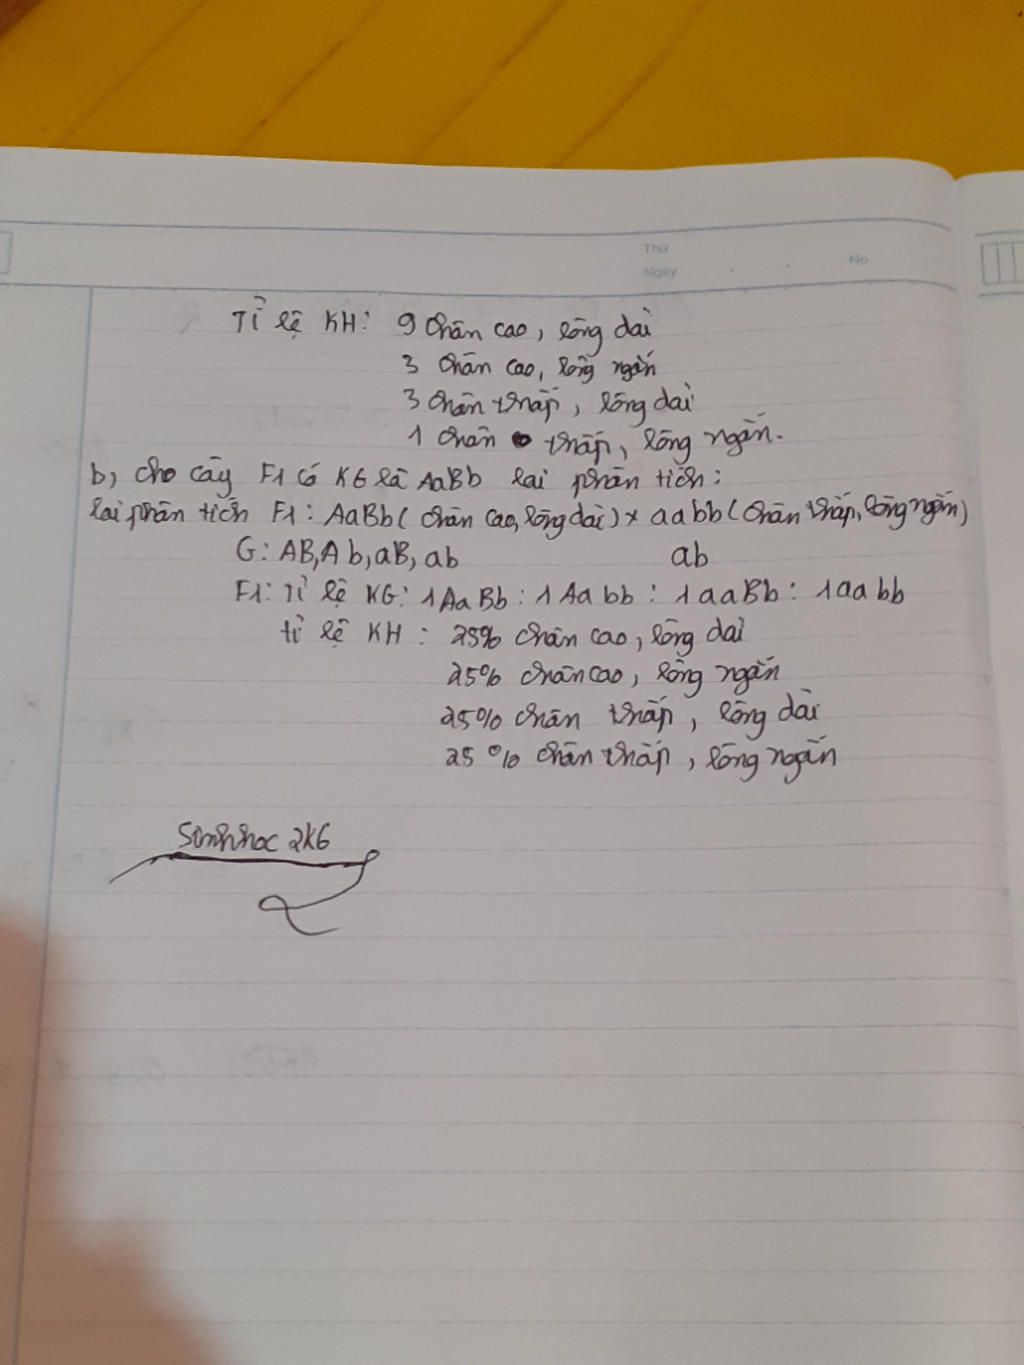 Thứ
Ngày
No
Tỉ lệ KH: 9 chân cao, lông dài
3 chân cao, lông ngắn
3 chân thấp, lông dài
1 chân thấp, lông ngắn.
b, cho cây F1 có KG là AaBb lai phân tích:
lai phân tích F1: AaBb (chân cao, lông dài) x aabb (chân thấp, lông ngắn)
G: AB, Ab, aB, ab ab
F1: Tỉ lệ KG: 1AaBb : 1Aabb : 1aaBb : 1aabb
tỉ lệ KH: 25% chân cao, lông dài
25% chân cao, lông ngắn
25% chân thấp, lông dài
25% chân thấp, lông ngắn
Sinh học 2K6